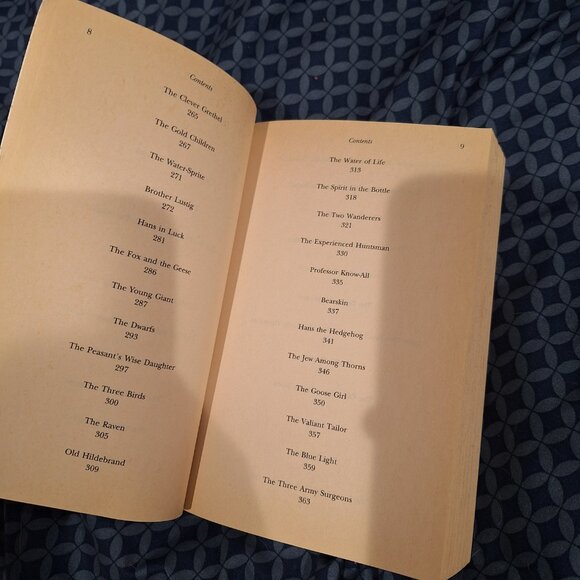 8
Contents
The Clever Grethel
265
The Gold Children
267
The Water-Sprite
271
Brother Lustig
272
Hans in Luck
281
The Fox and the Geese
286
The Young Giant
287
The Dwarfs
293
The Peasant's Wise Daughter
297
The Three Birds
300
The Raven
305
Old Hildebrand
309
Contents
9
The Water of Life
313
The Spirit in the Bottle
318
The Two Wanderers
321
The Experienced Huntsman
330
Professor Know-All
335
Bearskin
337
Hans the Hedgehog
341
The Jew Among Thorns
346
The Goose Girl
350
The Valiant Tailor
357
The Blue Light
359
The Three Army Surgeons
363